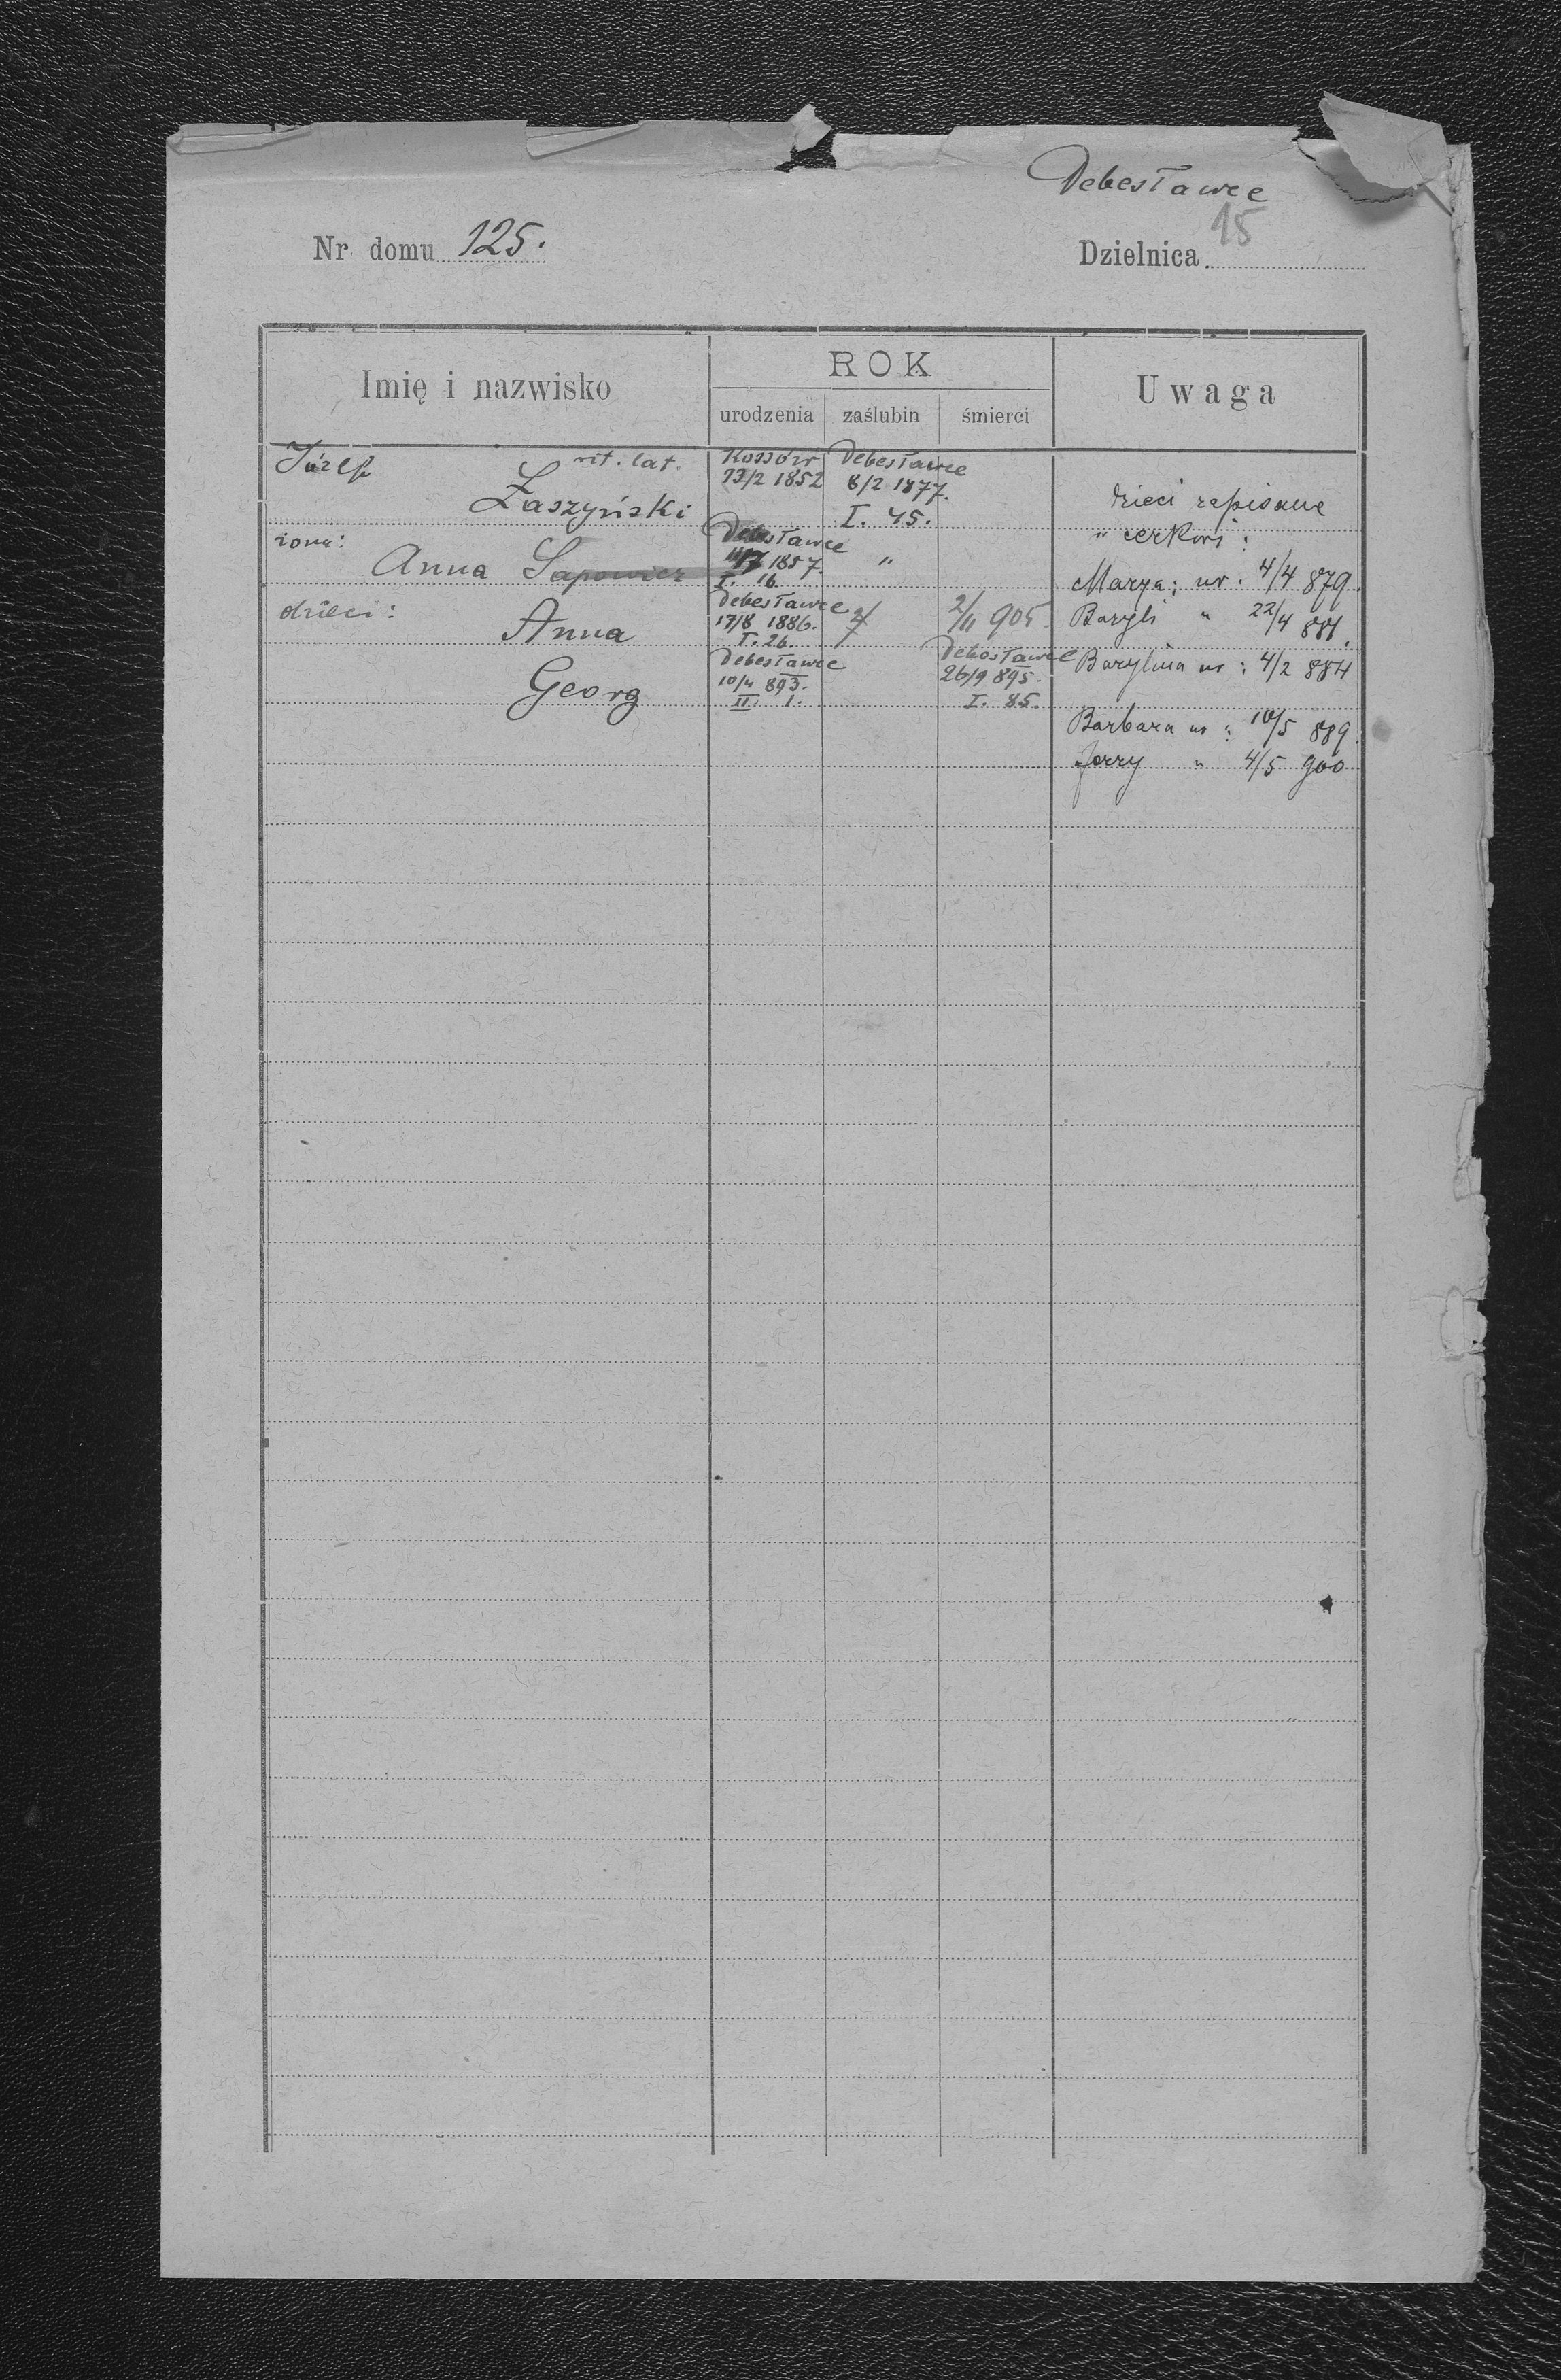 Debesławce
15
Nr. domu 125.
Dzielnica
Imię i nazwisko
ROK
urodzenia zaślubin śmierci
Uwaga
Józef rit. lat. Kossów Debesławce
Zaszyński 13/2 1852 8/2 1877. dzieci zapisane
I. 45. w cerkwi:
żona: Debesławce
Anna Sapowicz 1857. "
I. 16 Marya: ur. 4/4 879.
dzieci: Debesławce
Anna 17/8 1886. 2/11 905. Baryli " 22/4 881.
I. 26.
Debesławce Debesławce Barylina ur: 4/2 884
Georg 10/4 893. 26/9 895.
II. 1. I. 85.
Barbara ur: 10/5 889.
Jerzy " 4/5 900